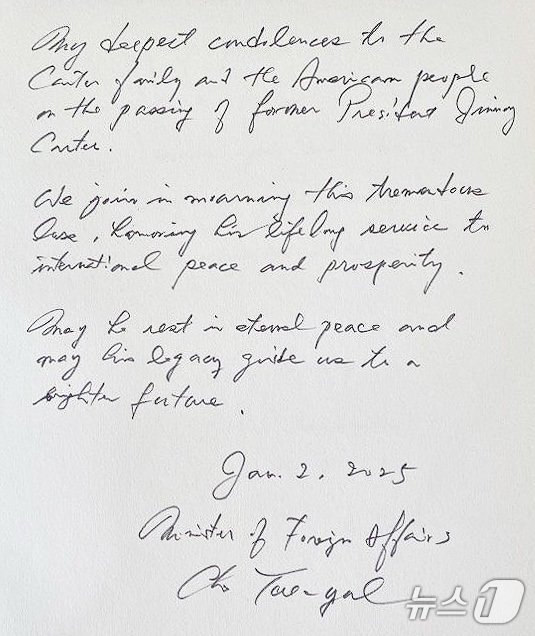 My deepest condolences to the
Carter family and the American people
on the passing of former President Jimmy
Carter.
We join in mourning this tremendous
loss, honoring his lifelong service to
international peace and prosperity.
May he rest in eternal peace and
may his legacy guide us to a
brighter future.
Jan. 2, 2025
Minister of Foreign Affairs
Cho Tae-yul
뉴스1